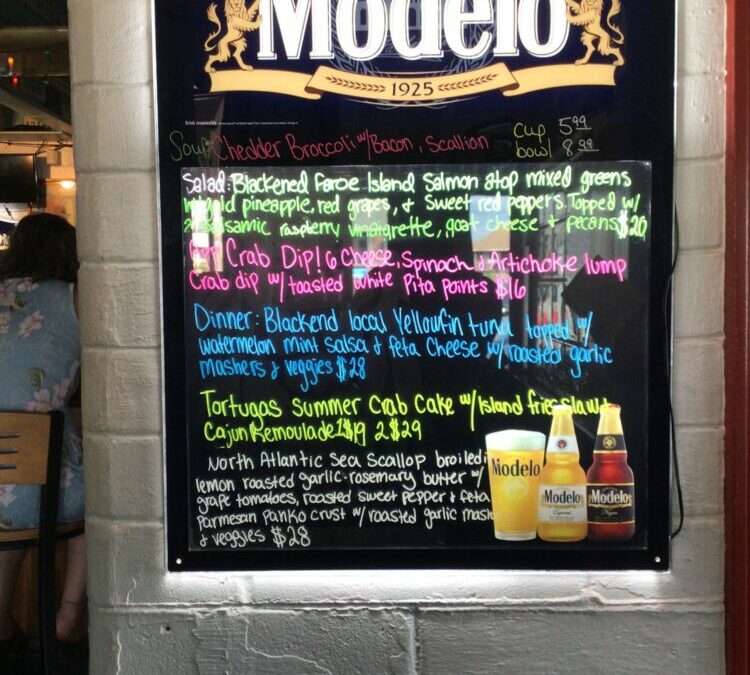 Modelo
1925
Soup Chedder Broccoli w/ Bacon, Scallion
cup 5.99
bowl 8.99
Salad: Blackened Faroe Island Salmon atop mixed greens
w/ gold pineapple, red grapes, & sweet red peppers. Topped w/
balsamic raspberry vinaigrette, goat cheese & pecans $20
Crab Dip! 6 Cheese, Spinach & Artichoke lump
Crab dip w/ toasted white Pita points $16
Dinner: Blackend local Yellowfin tuna topped w/
watermelon mint salsa & feta Cheese w/ roasted garlic
mashers & veggies $28
Tortugas Summer Crab Cake w/ Island fries slaw &
Cajun Remoulade 1 $19 2 $29
North Atlantic Sea Scallop broiled i
lemon roasted garlic-rosemary butter w/
grape tomatoes, roasted sweet pepper & feta
parmesan panko crust w/ roasted garlic mash
& veggies $28
Modelo
Modelo
Especial
Modelo
Negra